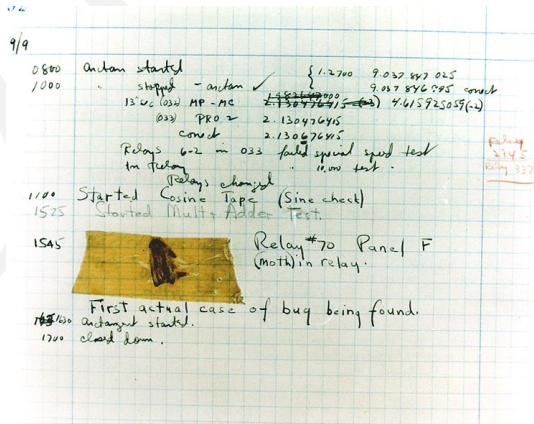 9/9
0800 antan started
1000 " stopped - antan ✓ { 1.2700 9.037 847 025
9.037 846 995 conect
13"uc (032) MP-MC 2.130476415 4.615925059(-2)
(033) PRO 2 2.130476415
conect 2.130676415
Relays 6-2 in 033 failed special speed test
in relay " 10,000 test.
Relays changed
1100 Started Cosine Tape (Sine check)
1525 Started Mult + Adder Test.
1545 Relay #70 Panel F
(moth) in relay.
First actual case of bug being found.
1630 antangent started.
1700 closed down.
Relay
2145
Relay 337